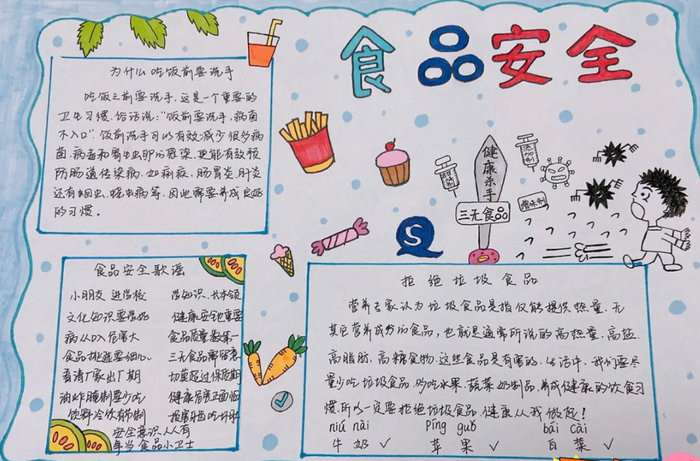 食品安全
为什么吃饭前要洗手
吃饭之前要洗手，这是一个重要的
卫生习惯，俗话说："饭前要洗手，病菌
不入口"。饭前洗手可以有效减少很多病
菌、病毒和寄生虫卵的感染，更能有效预
防肠道传染病，如痢疾、肠胃炎、肝炎
还有蛔虫、蛲虫病等，因此需要养成良好
的习惯。
健康杀手
三无食品
增味剂
S
食品安全歌谣
小朋友 进学校 学知识 长本领
文化知识要学好 健康安全更重要
病从口入危害大 食品质量数第一
食品挑选要细心 三无食品
看清厂家出厂期 切莫超过保质期
油炸腌制要少吃 健康
饮料冷饮有节制
安全意识人人有
争当食品小卫士
拒绝垃圾食品
营养专家认为垃圾食品是指仅能提供热量，无
其它营养成分的食品，也就是通常所说的高热量、高盐、
高脂肪、高糖食物。这些食品是有害的，生活中，我们要尽
量少吃垃圾食品，多吃水果、蔬菜、奶制品，养成健康的饮食习
惯，所以一定要拒绝垃圾食品，健康从我做起！
niú nǎi píng guǒ bái cài
牛奶 ✓ 苹果 ✓ 白菜 ✓